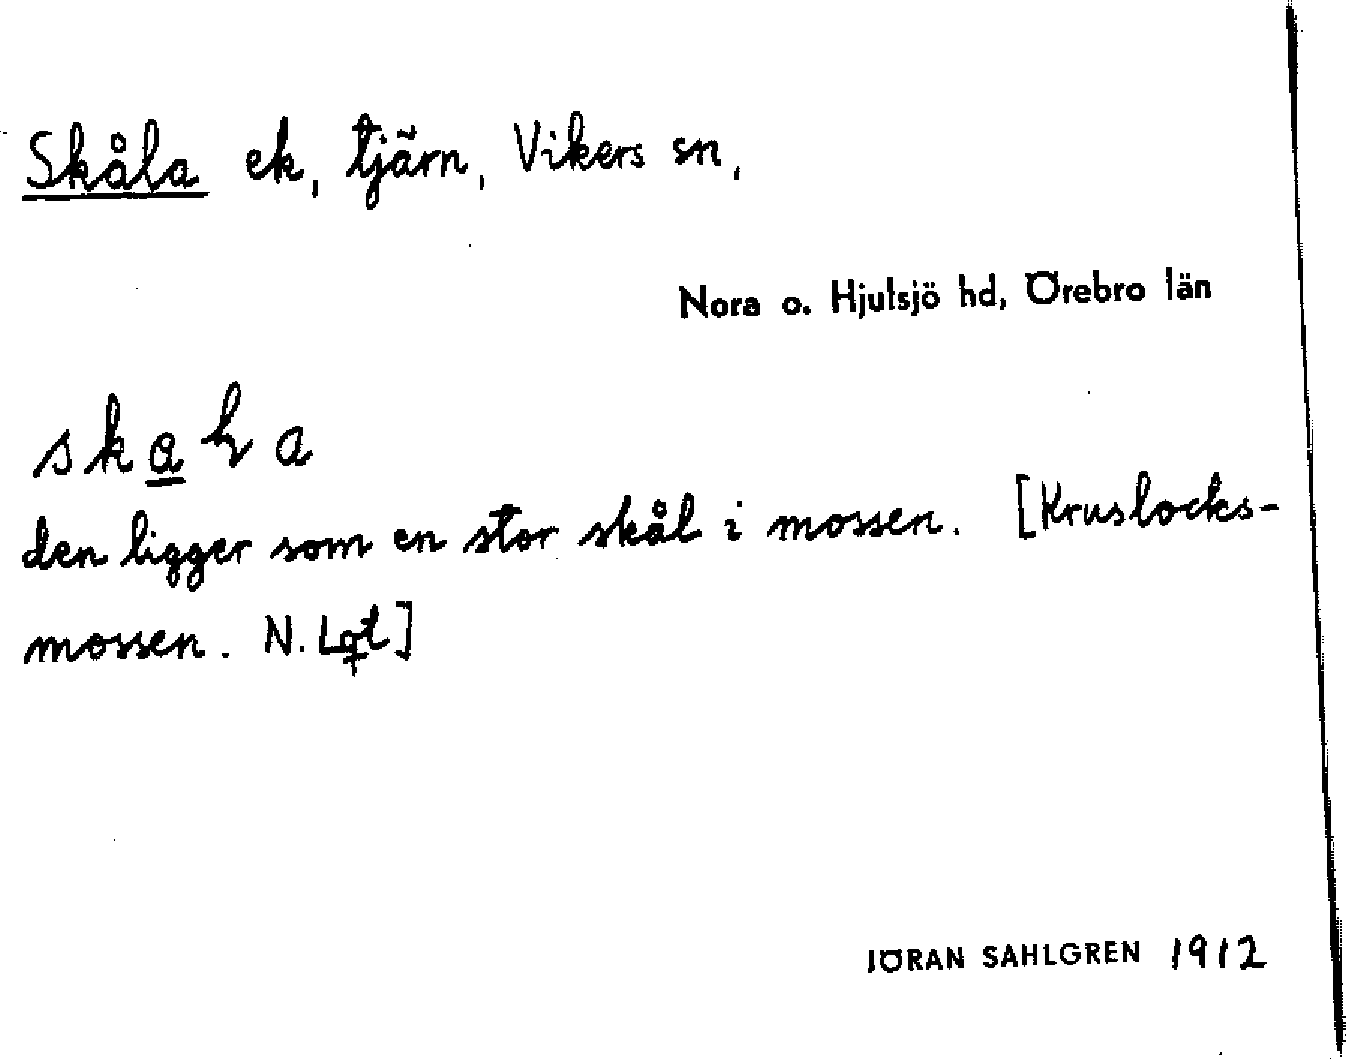 Skåla ek, tjärn, Vikers sn,
Nora o. Hjulsjö hd, Örebro län
den ligger som en stor skål i mossen. [Kruslocks-
mossen. N.
JÖRAN SAHLGREN 1912